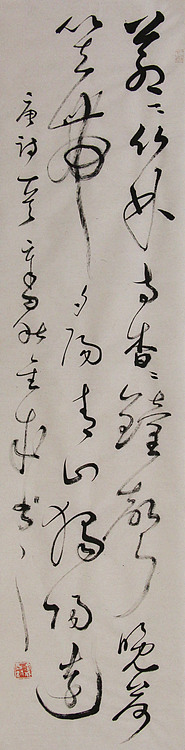 蒼〻竹林寺杳〻鐘聲晚荷
笠帶夕陽青山獨歸遠
唐詩一首 秋 書